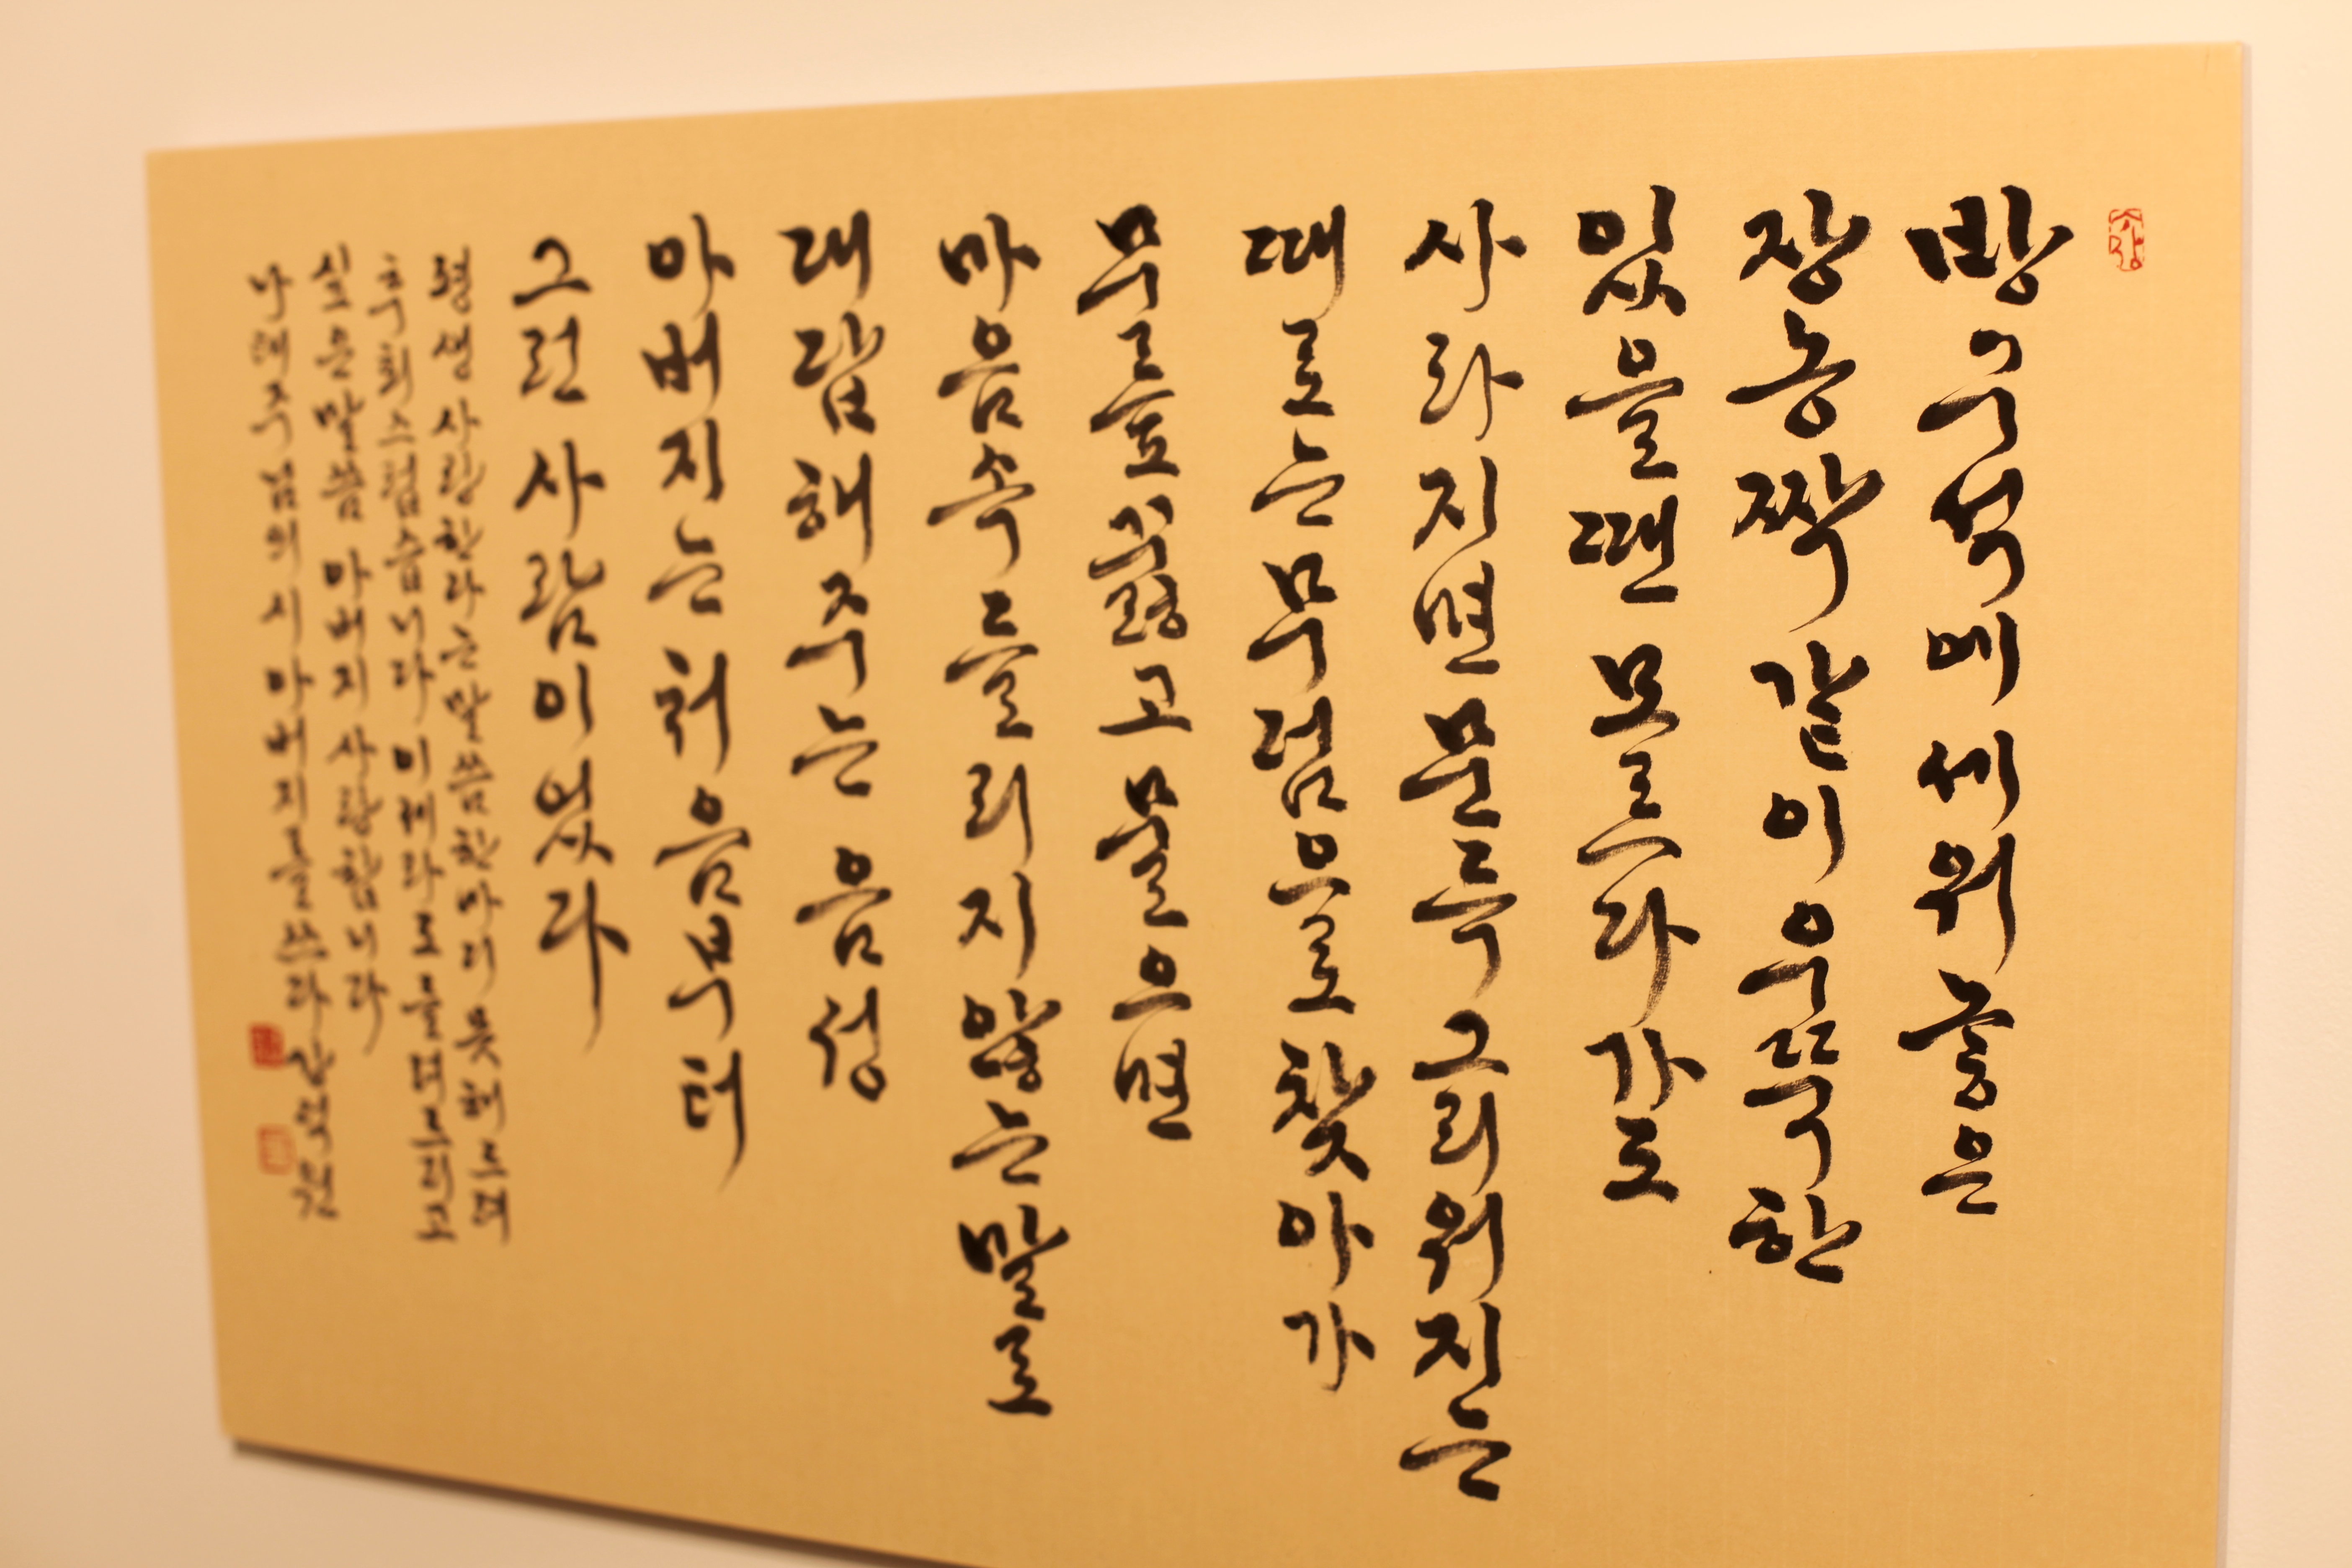 방구석에 세워 놓은
장농짝 같이 우뚝한
있을 땐 모르다가도
사라지면 문득 그리워지는
때로는 무덤으로 찾아가
무릎 꿇고 물으면
마음속 들리지 않는 말로
대답해주는 음성
아버지는 처음부터
그런 사람이었다
평생 사랑한다는 말씀 한마디 못해드려
후회스럽습니다 이제라도 올려드리고
싶은 말씀 아버지 사랑합니다
나태주님의 시 아버지를 쓰다